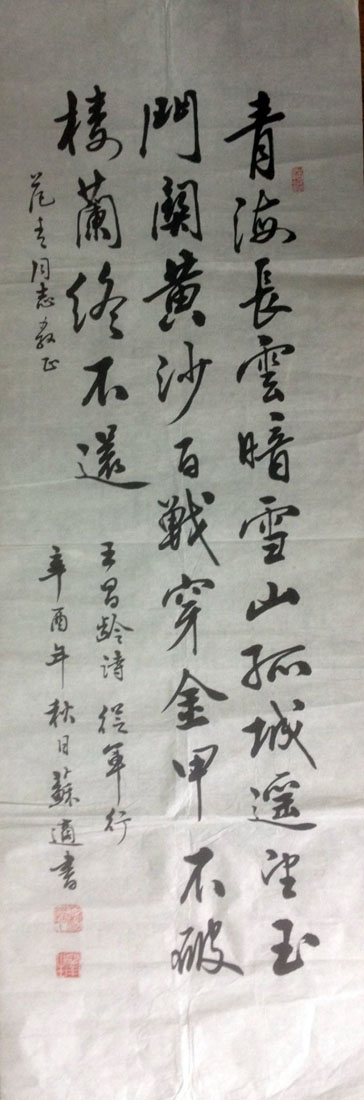 青海長雲暗雪山孤城遥望玉
門關黄沙百戰穿金甲不破
樓蘭終不還
王昌齡詩從軍行
辛酉年秋日蘇適書
同志教正